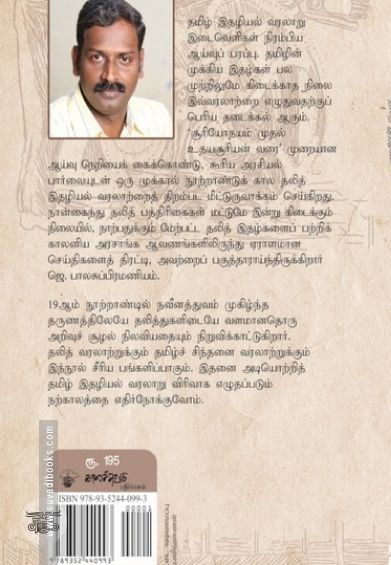 தமிழ் இதழியல் வரலாறு
இடைவெளிகள் நிரம்பிய
ஆய்வுப் பரப்பு. தமிழின்
முக்கிய இதழ்கள் பல
முற்றிலுமே கிடைக்காத நிலை
இவ்வரலாற்றை எழுதுவதற்குப்
பெரிய தடைக்கல் ஆகும்.
'சூரியோதயம் முதல்
உதயசூரியன் வரை' முறையான
ஆய்வு நெறியைக் கைக்கொண்டு, கூரிய அரசியல்
பார்வையுடன் ஒரு முக்கால் நூற்றாண்டுக் கால தலித்
இதழியல் வரலாற்றைத் திறம்பட மீட்டுருவாக்கம் செய்கிறது.
நான்கைந்து தலித் பத்திரிகைகள் மட்டுமே இன்று கிடைக்கும்
நிலையில், நாற்பதுக்கும் மேற்பட்ட தலித் இதழ்களைப் பற்றிக்
காலனிய அரசாங்க ஆவணங்களிலிருந்து ஏராளமான
செய்திகளைத் திரட்டி, அவற்றைப் பகுத்தாராய்ந்திருக்கிறார்
ஜெ. பாலசுப்பிரமணியம்.
19ஆம் நூற்றாண்டில் நவீனத்துவம் முகிழ்ந்த
தருணத்திலேயே தலித்துகளிடையே வளமானதொரு
அறிவுச் சூழல் நிலவியதையும் நிறுவிக்காட்டுகிறார்.
தலித் வரலாற்றுக்கும் தமிழ்ச் சிந்தனை வரலாற்றுக்கும்
இந்நூல் சீரிய பங்களிப்பாகும். இதனை அடியொற்றித்
தமிழ் இதழியல் வரலாறு விரிவாக எழுதப்படும்
நற்காலத்தை எதிர்நோக்குவோம்.
ரூ. 195
காலச்சுவடு
பதிப்பகம்
ISBN 978-93-5244-099-3
9 789352 440993
www.suvadibooks.com